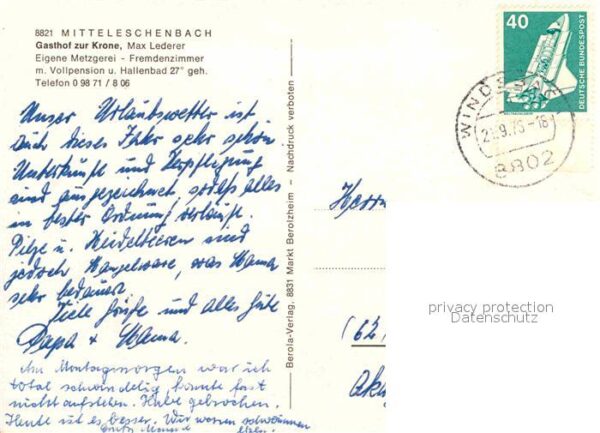 8821 MITTELESCHENBACH
Gasthof zur Krone, Max Lederer
Eigene Metzgerei - Fremdenzimmer
m. Vollpension u. Hallenbad 27° geh.
Telefon 0 98 71 / 8 06
Unser Urlaubswetter ist
auch dieses Jahr sehr schön.
Unterkünfte und Verpflegung
sind ausgezeichnet sodaß alles
in bester Ordnung verläuft.
Pilze u. Heidelbeeren sind
jedoch Mangelware, was Mama
sehr bedauert.
Viele Grüße und alles Gute
Papa + Mama.
Am Montagmorgen war ich
total schwindelig, konnte fast
nicht aufstehen. Habe gebrochen.
Heute ist es besser. Wir waren schwimmen
Berola-Verlag, 8831 Markt Berolzheim — Nachdruck verboten
40
DEUTSCHE BUNDESPOST
WINDSBAC
9.76-18
8802
Herrn
(62
privacy protection
Datenschutz